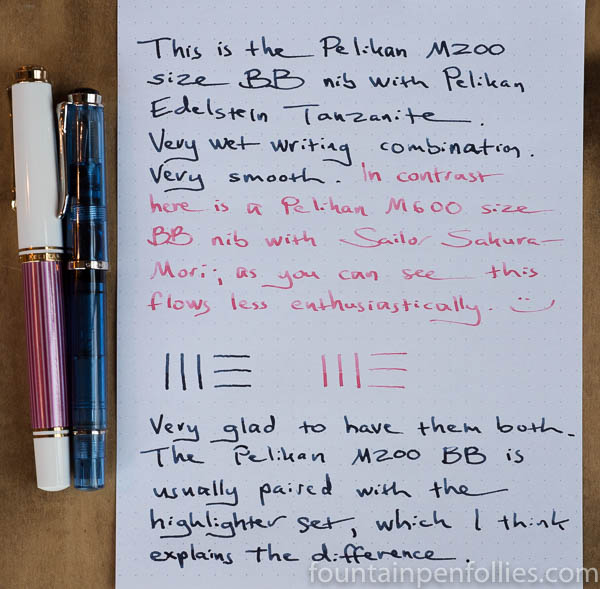 This is the Pelikan M200
size BB nib with Pelikan
Edelstein Tanzanite.
Very wet writing combination.
Very smooth. In contrast
here is a Pelikan M600 size
BB nib with Sailor Sakura-
Mori; as you can see this
flows less enthusiastically. :)
Very glad to have them both.
The Pelikan M200 BB is
usually paired with the
highlighter set, which I think
explains the difference.
fountainpenfollies.com